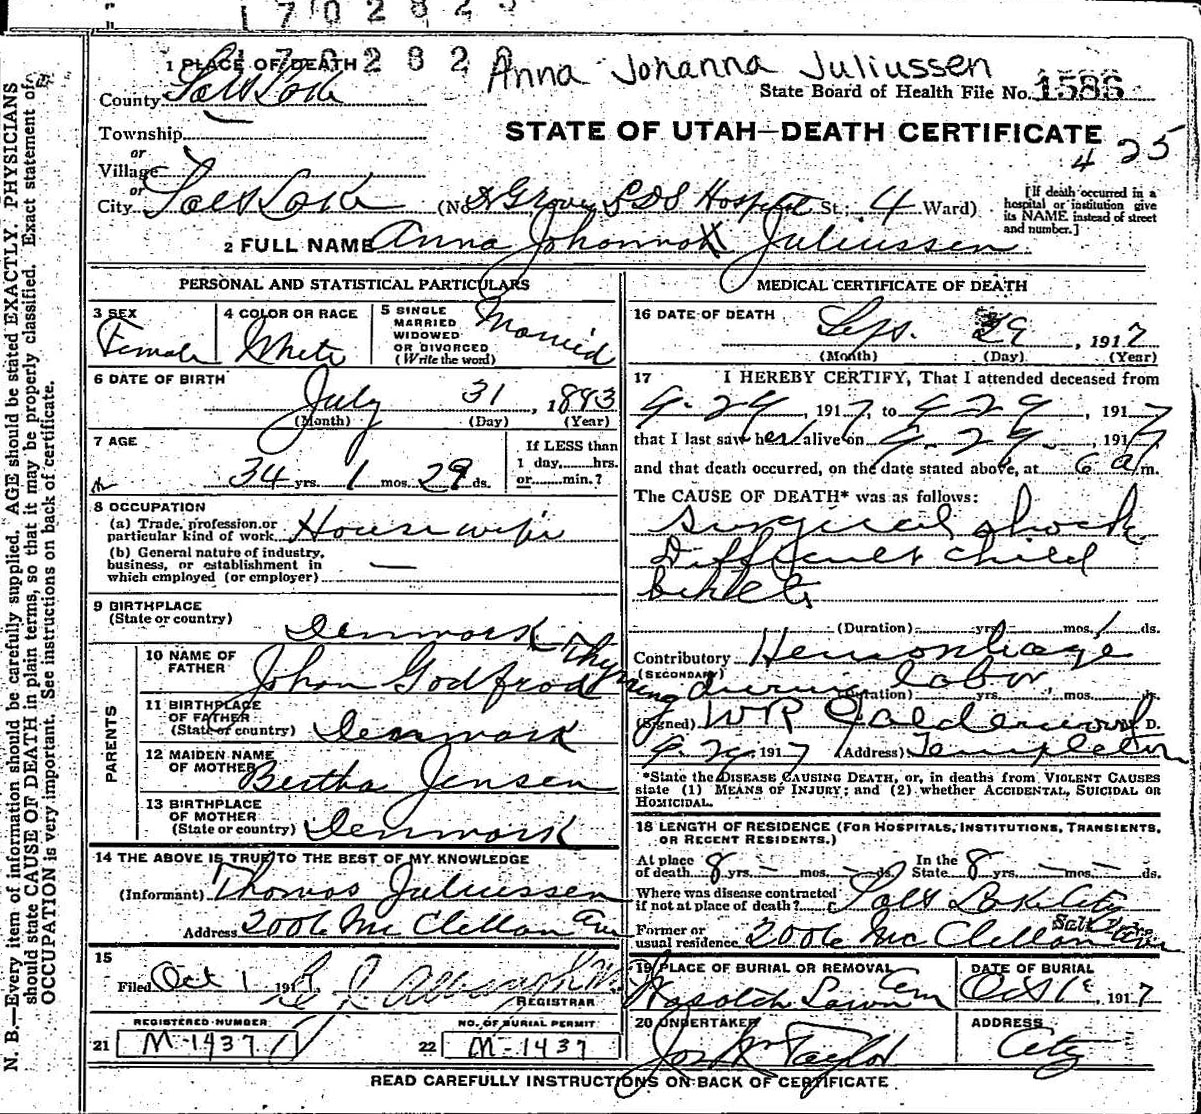 1702823
170282
Anna Johanna Juliussen
1 PLACE OF DEATH
County Salt Lake
State Board of Health File No. 1586
STATE OF UTAH—DEATH CERTIFICATE
425
Township
or
Village
or
City Salt Lake (No. LDS Hospital St.; 4 Ward)
[If death occurred in a hospital or institution give its NAME instead of street and number.]
2 FULL NAME Anna Johanna Juliussen
PERSONAL AND STATISTICAL PARTICULARS
3 SEX Female
4 COLOR OR RACE White
5 SINGLE MARRIED WIDOWED OR DIVORCED (Write the word) Married
6 DATE OF BIRTH
July 31, 1883
(Month) (Day) (Year)
7 AGE
34 yrs. 1 mos. 29 ds.
If LESS than 1 day, hrs. or min.?
8 OCCUPATION
(a) Trade, profession, or particular kind of work Housewife
(b) General nature of industry, business, or establishment in which employed (or employer) —
9 BIRTHPLACE
(State or country) Denmark
PARENTS
10 NAME OF FATHER Johan Godfrod Thyring
11 BIRTHPLACE OF FATHER (State or country) Denmark
12 MAIDEN NAME OF MOTHER Bertha Jensen
13 BIRTHPLACE OF MOTHER (State or country) Denmark
14 THE ABOVE IS TRUE TO THE BEST OF MY KNOWLEDGE
(Informant) Thomas Juliussen
Address 2006 McClellan Ave
15
Filed Oct 1 191
REGISTRAR
REGISTERED NUMBER
21 M-1437
NO. OF BURIAL PERMIT
22 M-1437
MEDICAL CERTIFICATE OF DEATH
16 DATE OF DEATH
Sep. 29, 1917
(Month) (Day) (Year)
17 I HEREBY CERTIFY, That I attended deceased from
9-29, 1917, to 9-29, 1917
that I last saw her alive on 9-29, 1917
and that death occurred, on the date stated above, at 6 a m.
The CAUSE OF DEATH* was as follows:
Surgical shock
Difficult child
birth
(Duration) yrs. mos. 1 ds.
Contributory Hemorrhage
(SECONDARY) during labor
(Duration) yrs. mos. ds.
(Signed) WR Calderwood M. D.
9-29 1917 (Address) Templeton
*State the DISEASE CAUSING DEATH, or, in deaths from VIOLENT CAUSES
state (1) MEANS OF INJURY; and (2) whether ACCIDENTAL, SUICIDAL OR
HOMICIDAL.
18 LENGTH OF RESIDENCE (FOR HOSPITALS, INSTITUTIONS, TRANSIENTS,
OR RECENT RESIDENTS.)
At place of death 8 yrs. — mos. — ds. In the State 8 yrs. — mos. — ds.
Where was disease contracted if not at place of death? Salt Lake City
Former or usual residence 2006 McClellan Ave
19 PLACE OF BURIAL OR REMOVAL
Wasatch Lawn Cem
DATE OF BURIAL
Oct 1, 1917
20 UNDERTAKER
Jos Wm Taylor
ADDRESS
City
READ CAREFULLY INSTRUCTIONS ON BACK OF CERTIFICATE
N. B.—Every item of information should be carefully supplied. AGE should be stated EXACTLY. PHYSICIANS
should state CAUSE OF DEATH in plain terms, so that it may be properly classified. Exact statement of
OCCUPATION is very important. See instructions on back of certificate.